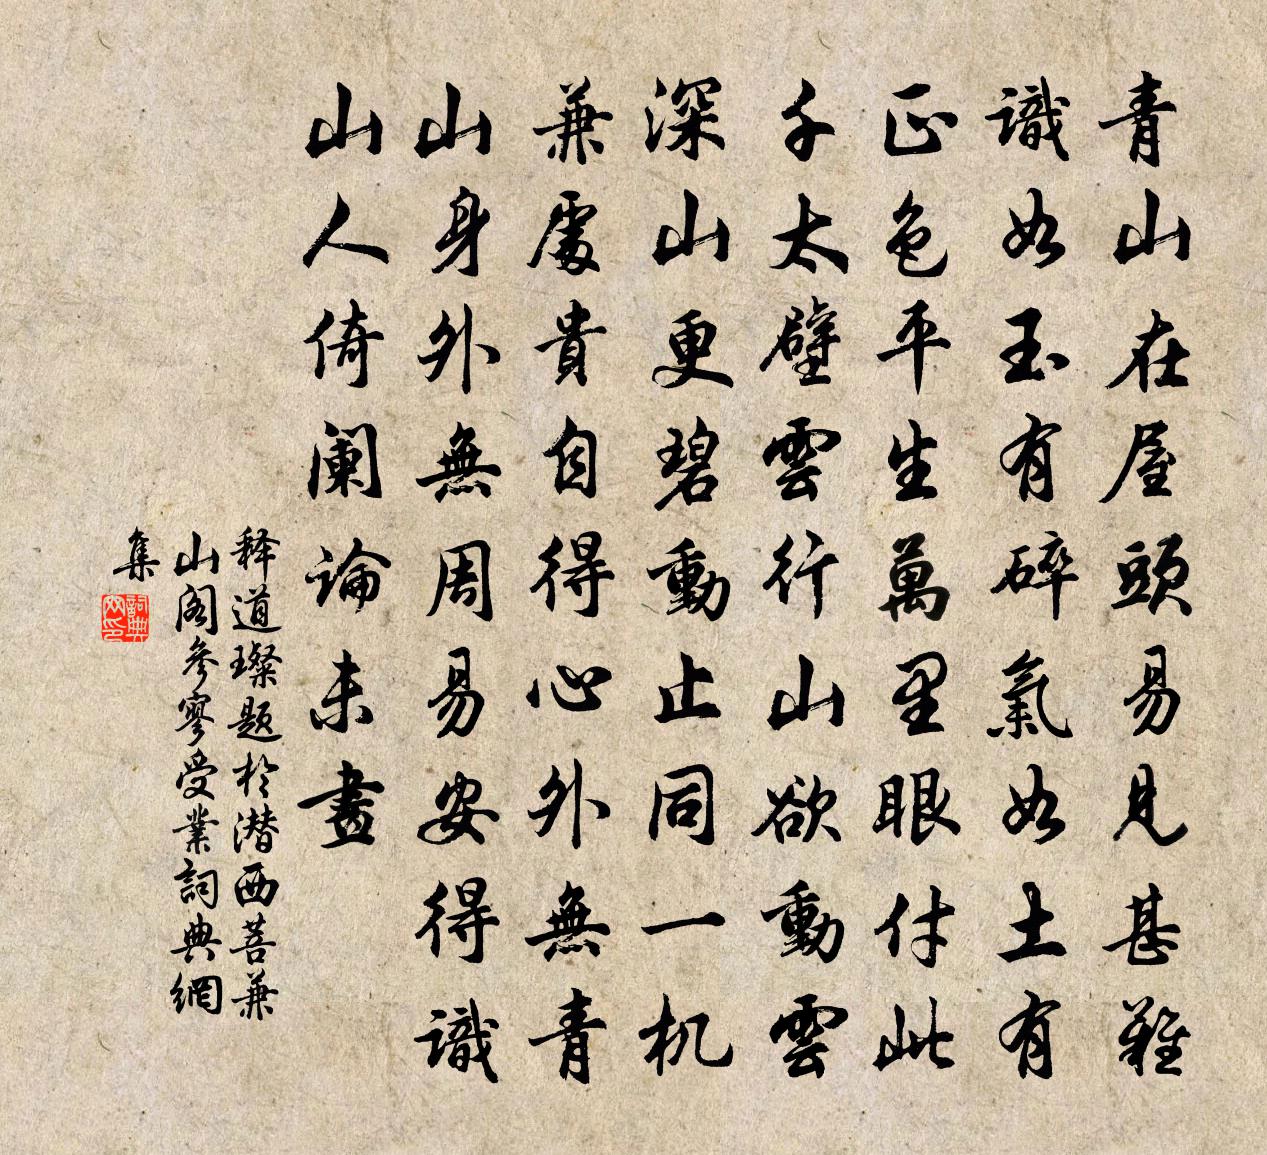 青山在屋頭易見甚難
識如玉有碎氣如土有
正色平生萬里眼付此
千太壁雲行山欲動雲
深山更碧動止同一机
兼處貴自得心外無青
山身外無周易安得識
山人倚闌論未畫
释道璨题於潜西菩兼
山阁參寥受業詞典網
集
詞典網印